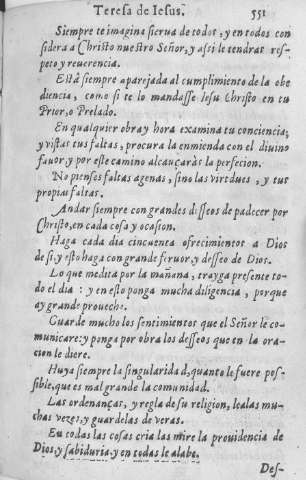 Teresa de Iesus. 551
Siempre te imagina sierua de todos, y en todos con
sidera a Christo nuestro Señor, y assi le tendras res-
peto y reuerencia.
Està siempre aparejada al cumplimiento de la obe
diencia, como si te lo mandasse Iesu Christo en tu
Prior, o Prelado.
En qualquier obra y hora examina tu conciencia;
y vistas tus faltas, procura la enmienda con el diuino
fauor: y por este camino alcançaràs la perfecion.
No pienses faltas agenas, sino las virtudes, y tus
propias faltas.
Andar siempre con grandes desseos de padecer por
Christo, en cada cosa y ocasion.
Haga cada dia cincuenta ofrecimientos a Dios
de si, y esto haga con grande feruor, y desseo de Dios.
Lo que medita por la mañana, trayga presente to-
do el dia: y en esto ponga mucha diligencia, porque
ay grande prouecho.
Guarde mucho los sentimientos que el Señor le co-
municare: y ponga por obra los desseos que en la ora-
cion le diere.
Huya siempre la singularidad, quanto le fuere pos-
sible, que es mal grande la comunidad.
Las ordenanças, y regla de su religion, lealas mu-
chas vezes, y guardelas de veras.
En todas las cosas crìadas mire la prouidencia de
Dios, y sabiduria: y en todas le alabe.
Des-